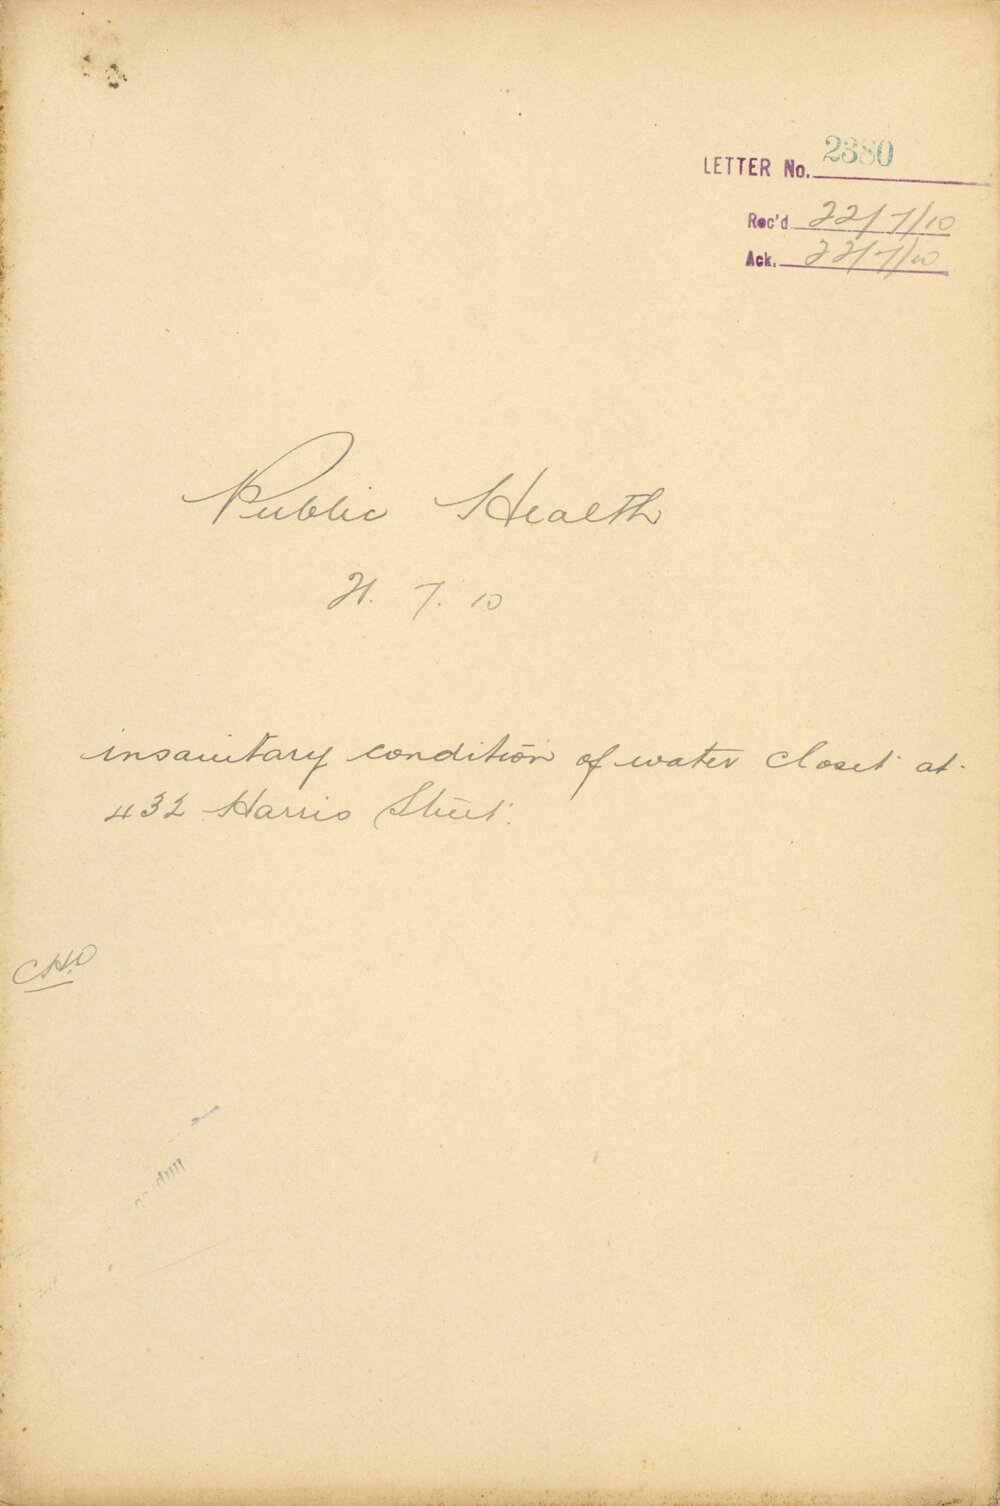 LETTER No. 2380
Rec'd 22/7/10
Ack. 22/7/10
Public Health
21. 7. 10
insanitary condition of water closet at
432 Harris Street.
CHO